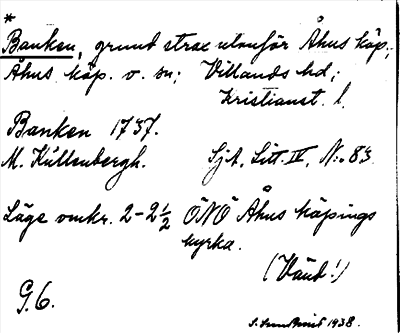 *
Banken, grund strax utanför Åhus köp.;
Åhus köp. o. sn; Villands hd;
Kristianst. l.
Banken 1737.
M. Kullenbergh. Sjk. Litt. IV, N:o 83.
Läge omkr. 2-2½ ÖNÖ Åhus köpings
kyrka.
(Vänd!)
G.6.
1938.